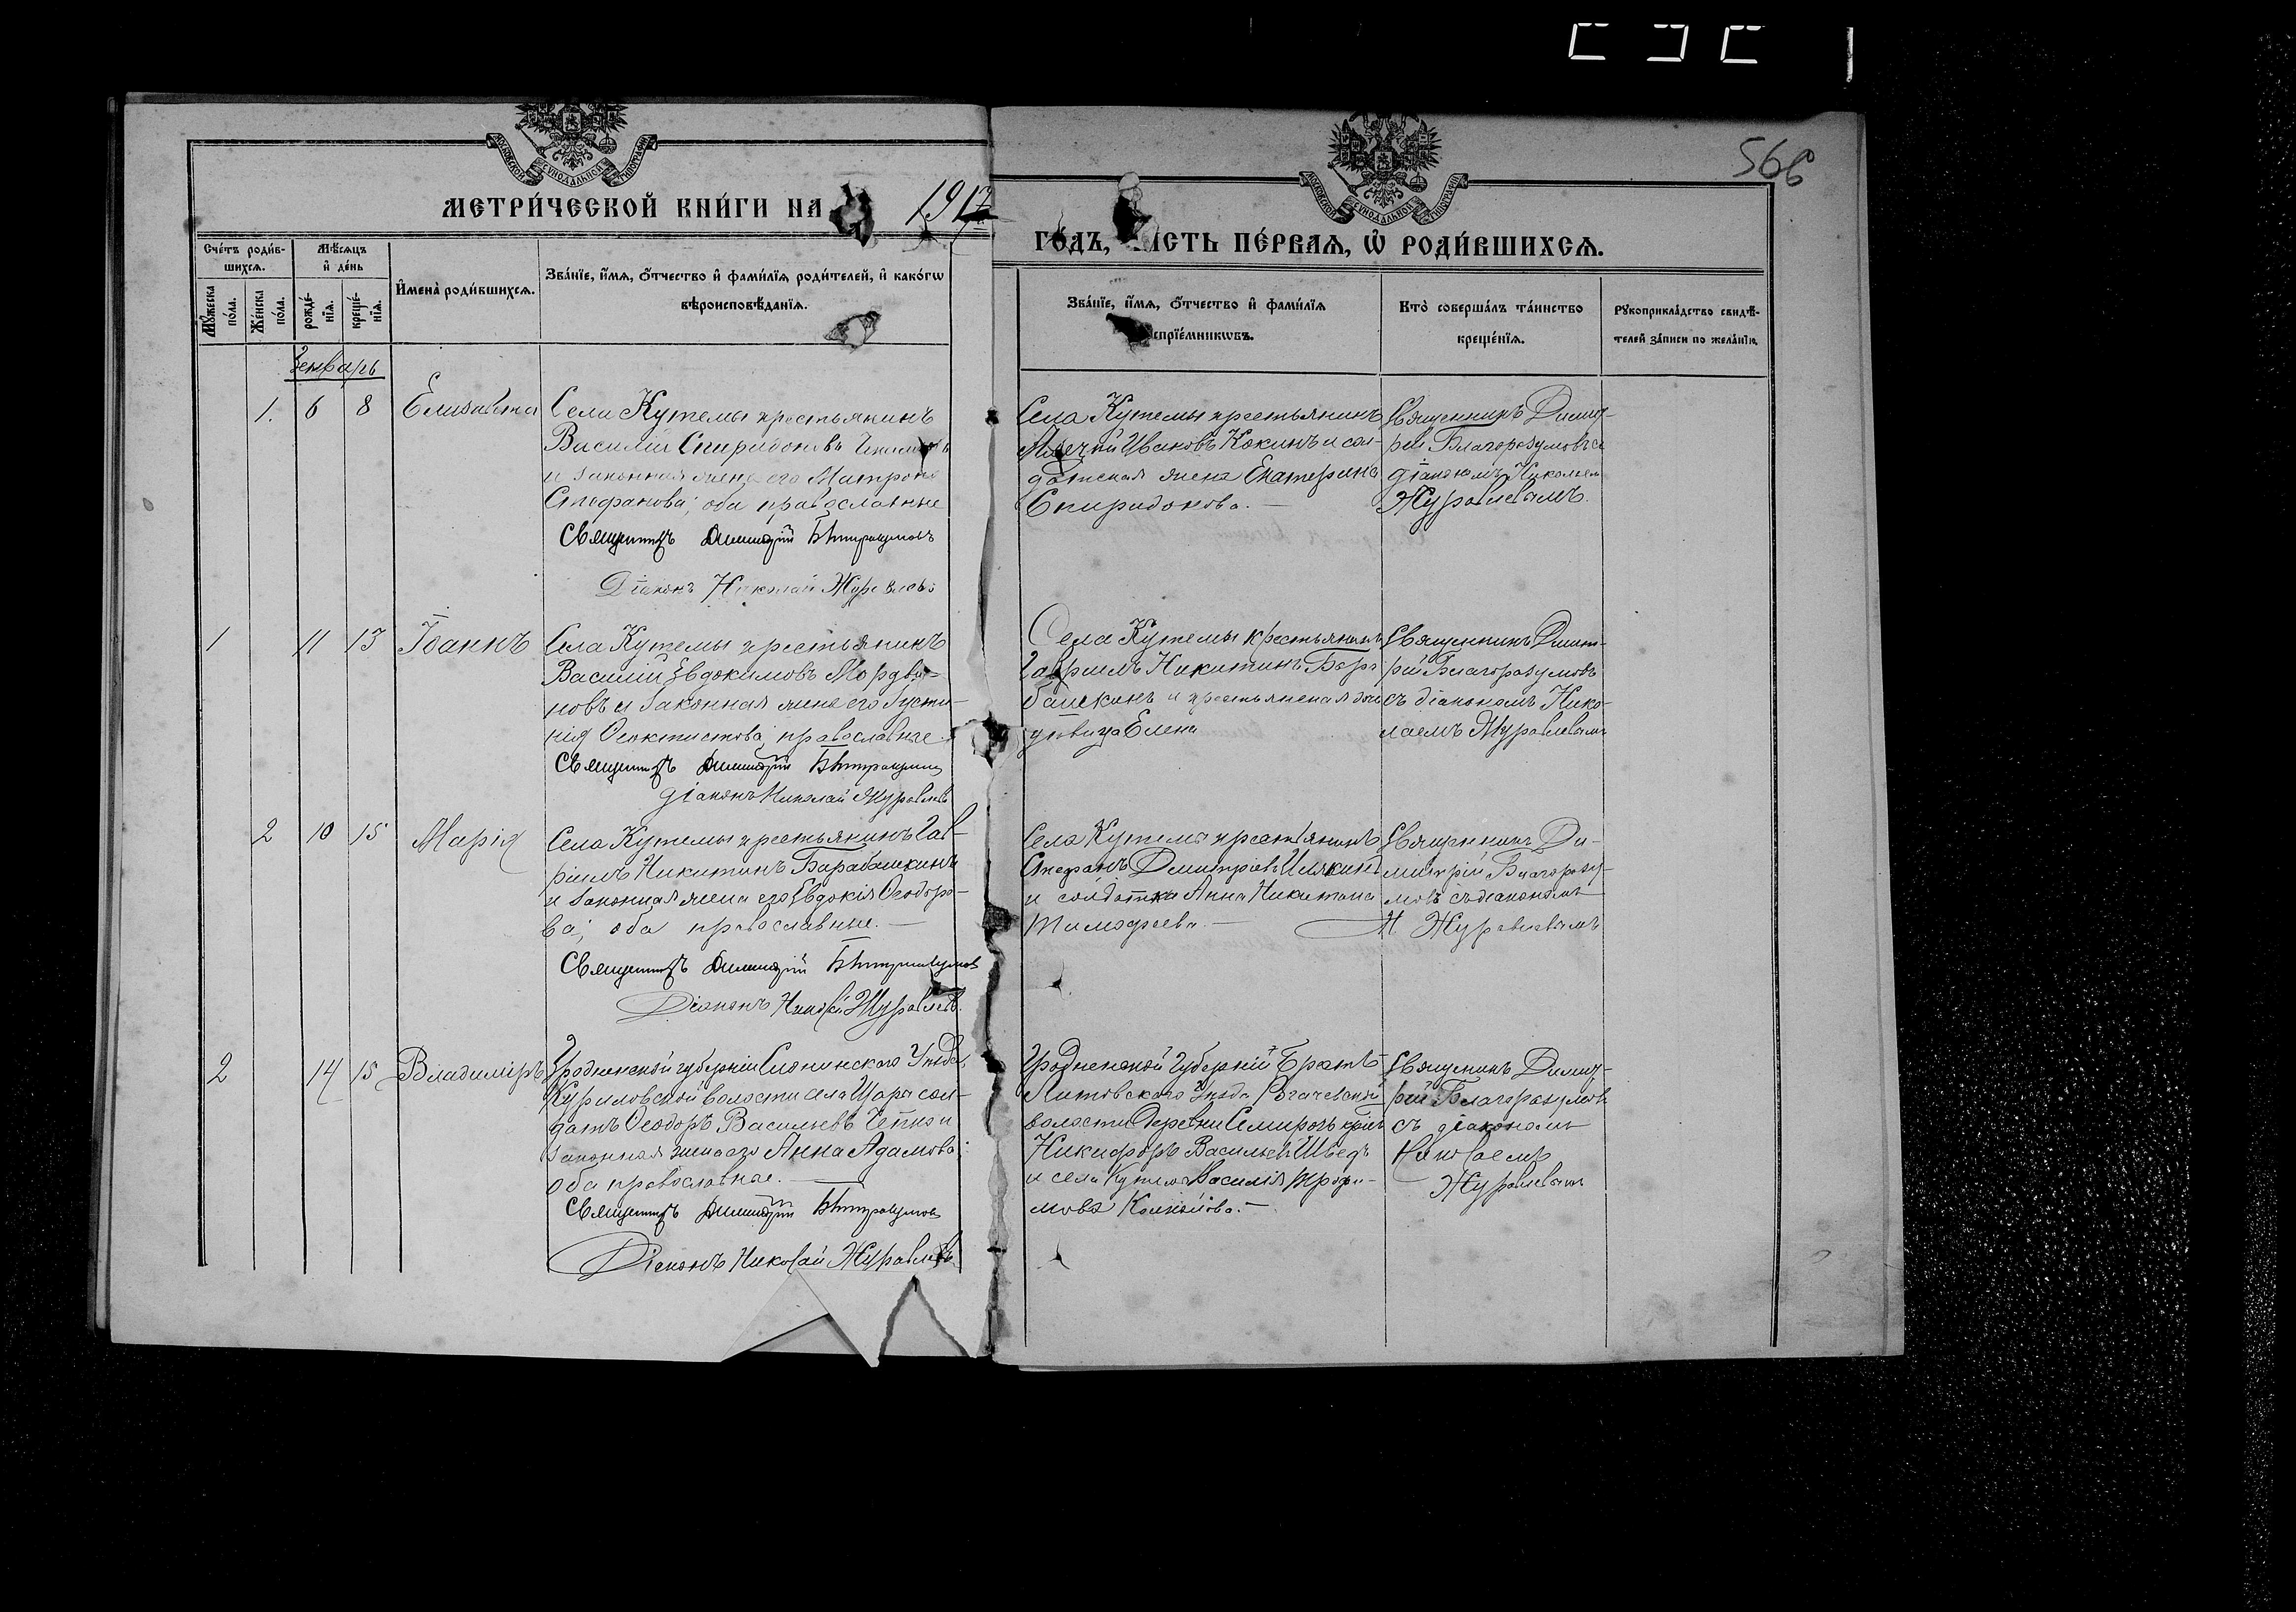 566
МОСКОВСКОЙ СУНОДАЛЬНОЙ ТИПОГРАФІИ
МОСКОВСКОЙ СУНОДАЛЬНОЙ ТИПОГРАФІИ
МЕТРИ́ЧЕСКОЙ КНИ́ГИ НА 1917
ГО́ДЪ, ЧАСТЬ ПЕ́РВАѦ, Ѡ҆ РОДИ́ВШИХСѦ.
Сче́тъ роди́в-
шихсѧ.
Мѣ́сѧцъ
и҆ де́нь
Мꙋ́жеска по́ла.
Же́нска по́ла.
рожде́-нїѧ.
креще́-нїѧ.
И҆мена̀ роди́вшихсѧ.
Зва́нїе, и҆́мѧ, ѻ҆́тчество и҆ фами́лїѧ роди́телей, и҆ како́гѡ
вѣроисповѣ́данїѧ.
Зва́нїе, и҆́мѧ, ѻ҆́тчество и҆ фами́лїѧ
спрїе́мникѡвъ.
Кто̀ соверша́лъ та́инство
креще́нїѧ.
Рꙋкоприкла́дство свидѣ́-
телей за́писи по жела́нїю.
Январь
1. 6 8 Елизавета
Села Кутемы крестьянинъ
Василій Спиридоновъ
и законная жена его Матрона
Стефанова; оба православные
Священникъ Димитрій Благоразумовъ
Діаконъ Николай Журавлевъ
Села Кутемы крестьянинъ
Ивановъ Кокинъ и сол-
датская жена Екатерина
Спиридонова.
Священникъ Димит-
рій Благоразумовъ съ
діакономъ Николаемъ
Журавлевымъ.
1 11 13 Іоаннъ
Села Кутемы крестьянинъ
Василій Евдокимовъ Мордви-
новъ и законная жена его Іусти-
нія Ѳеоктистова, православные.
Священникъ Димитрій Благоразумовъ
діаконъ Николай Журавлевъ
Села Кутемы крестьянинъ
Гавріилъ Никитинъ Бара-
башкинъ и крестьянская
дѣвица Елена
Священникъ Димит-
рій Благоразумовъ
съ діакономъ Нико-
лаемъ Журавлевымъ
2 10 15 Марія
Села Кутемы крестьянинъ Гав-
ріилъ Никитинъ Барабашкинъ
и законная жена его Евдокія Ѳеодоро-
ва; оба православные.
Священникъ Димитрій Благоразумовъ
Діаконъ Николай Журавлевъ.
Села Кутемы крестьянинъ
Стефанъ Димитріевъ Илякинъ
и солдатка Анна Никитина
Тимофеева.
Священникъ Ди-
митрій Благоразу-
мовъ съ діакономъ
Н Журавлевымъ
2 14 15 Владиміръ
Гродненской губерніи Слонимскаго Уѣзда,
Куриловской волости села Щара сол-
датъ Ѳеодоръ Васильевъ и
законная жена его Анна Адамова;
оба православные.
Священникъ Димитрій Благоразумовъ
Діаконъ Николай Журавлевъ.
Гродненской Губерніи Брестъ-
Литовскаго Уѣзда Рогачевской
волости деревни кр-нъ
Никифоръ Васильевъ Шведъ
и села Кутемы Василія Трофи-
мова
Священникъ Димит-
рій Благоразумовъ
съ діакономъ
Николаемъ
Журавлевымъ